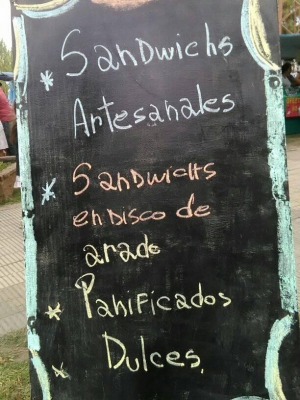 * Sandwichs
Artesanales
* Sandwichs
en Disco de
arado
* Panificados
* Dulces.